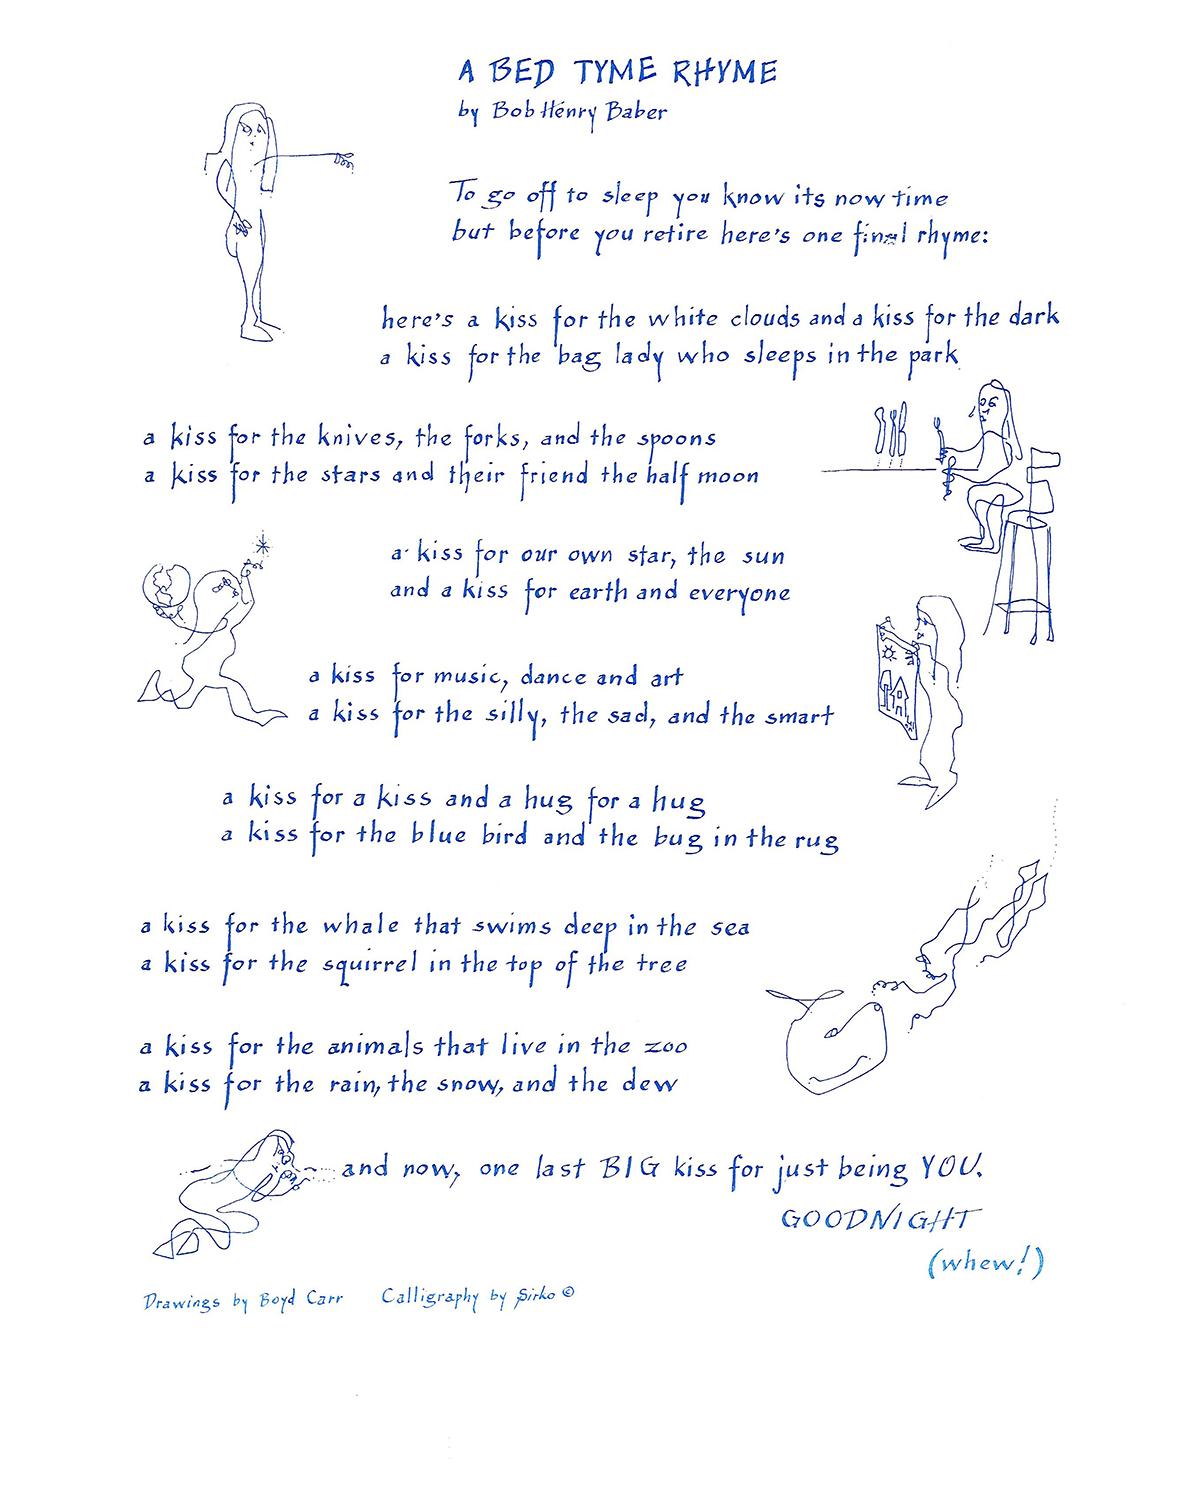 A BED TYME RHYME
by Bob Henry Baber
To go off to sleep you know its now time
but before you retire here's one final rhyme:
here's a kiss for the white clouds and a kiss for the dark
a kiss for the bag lady who sleeps in the park
a kiss for the knives, the forks, and the spoons
a kiss for the stars and their friend the half moon
a kiss for our own star, the sun
and a kiss for earth and everyone
a kiss for music, dance and art
a kiss for the silly, the sad, and the smart
a kiss for a kiss and a hug for a hug
a kiss for the blue bird and the bug in the rug
a kiss for the whale that swims deep in the sea
a kiss for the squirrel in the top of the tree
a kiss for the animals that live in the zoo
a kiss for the rain, the snow, and the dew
and now, one last BIG kiss for just being YOU.
GOODNIGHT
(whew!)
Drawings by Boyd Carr Calligraphy by Sirko ©